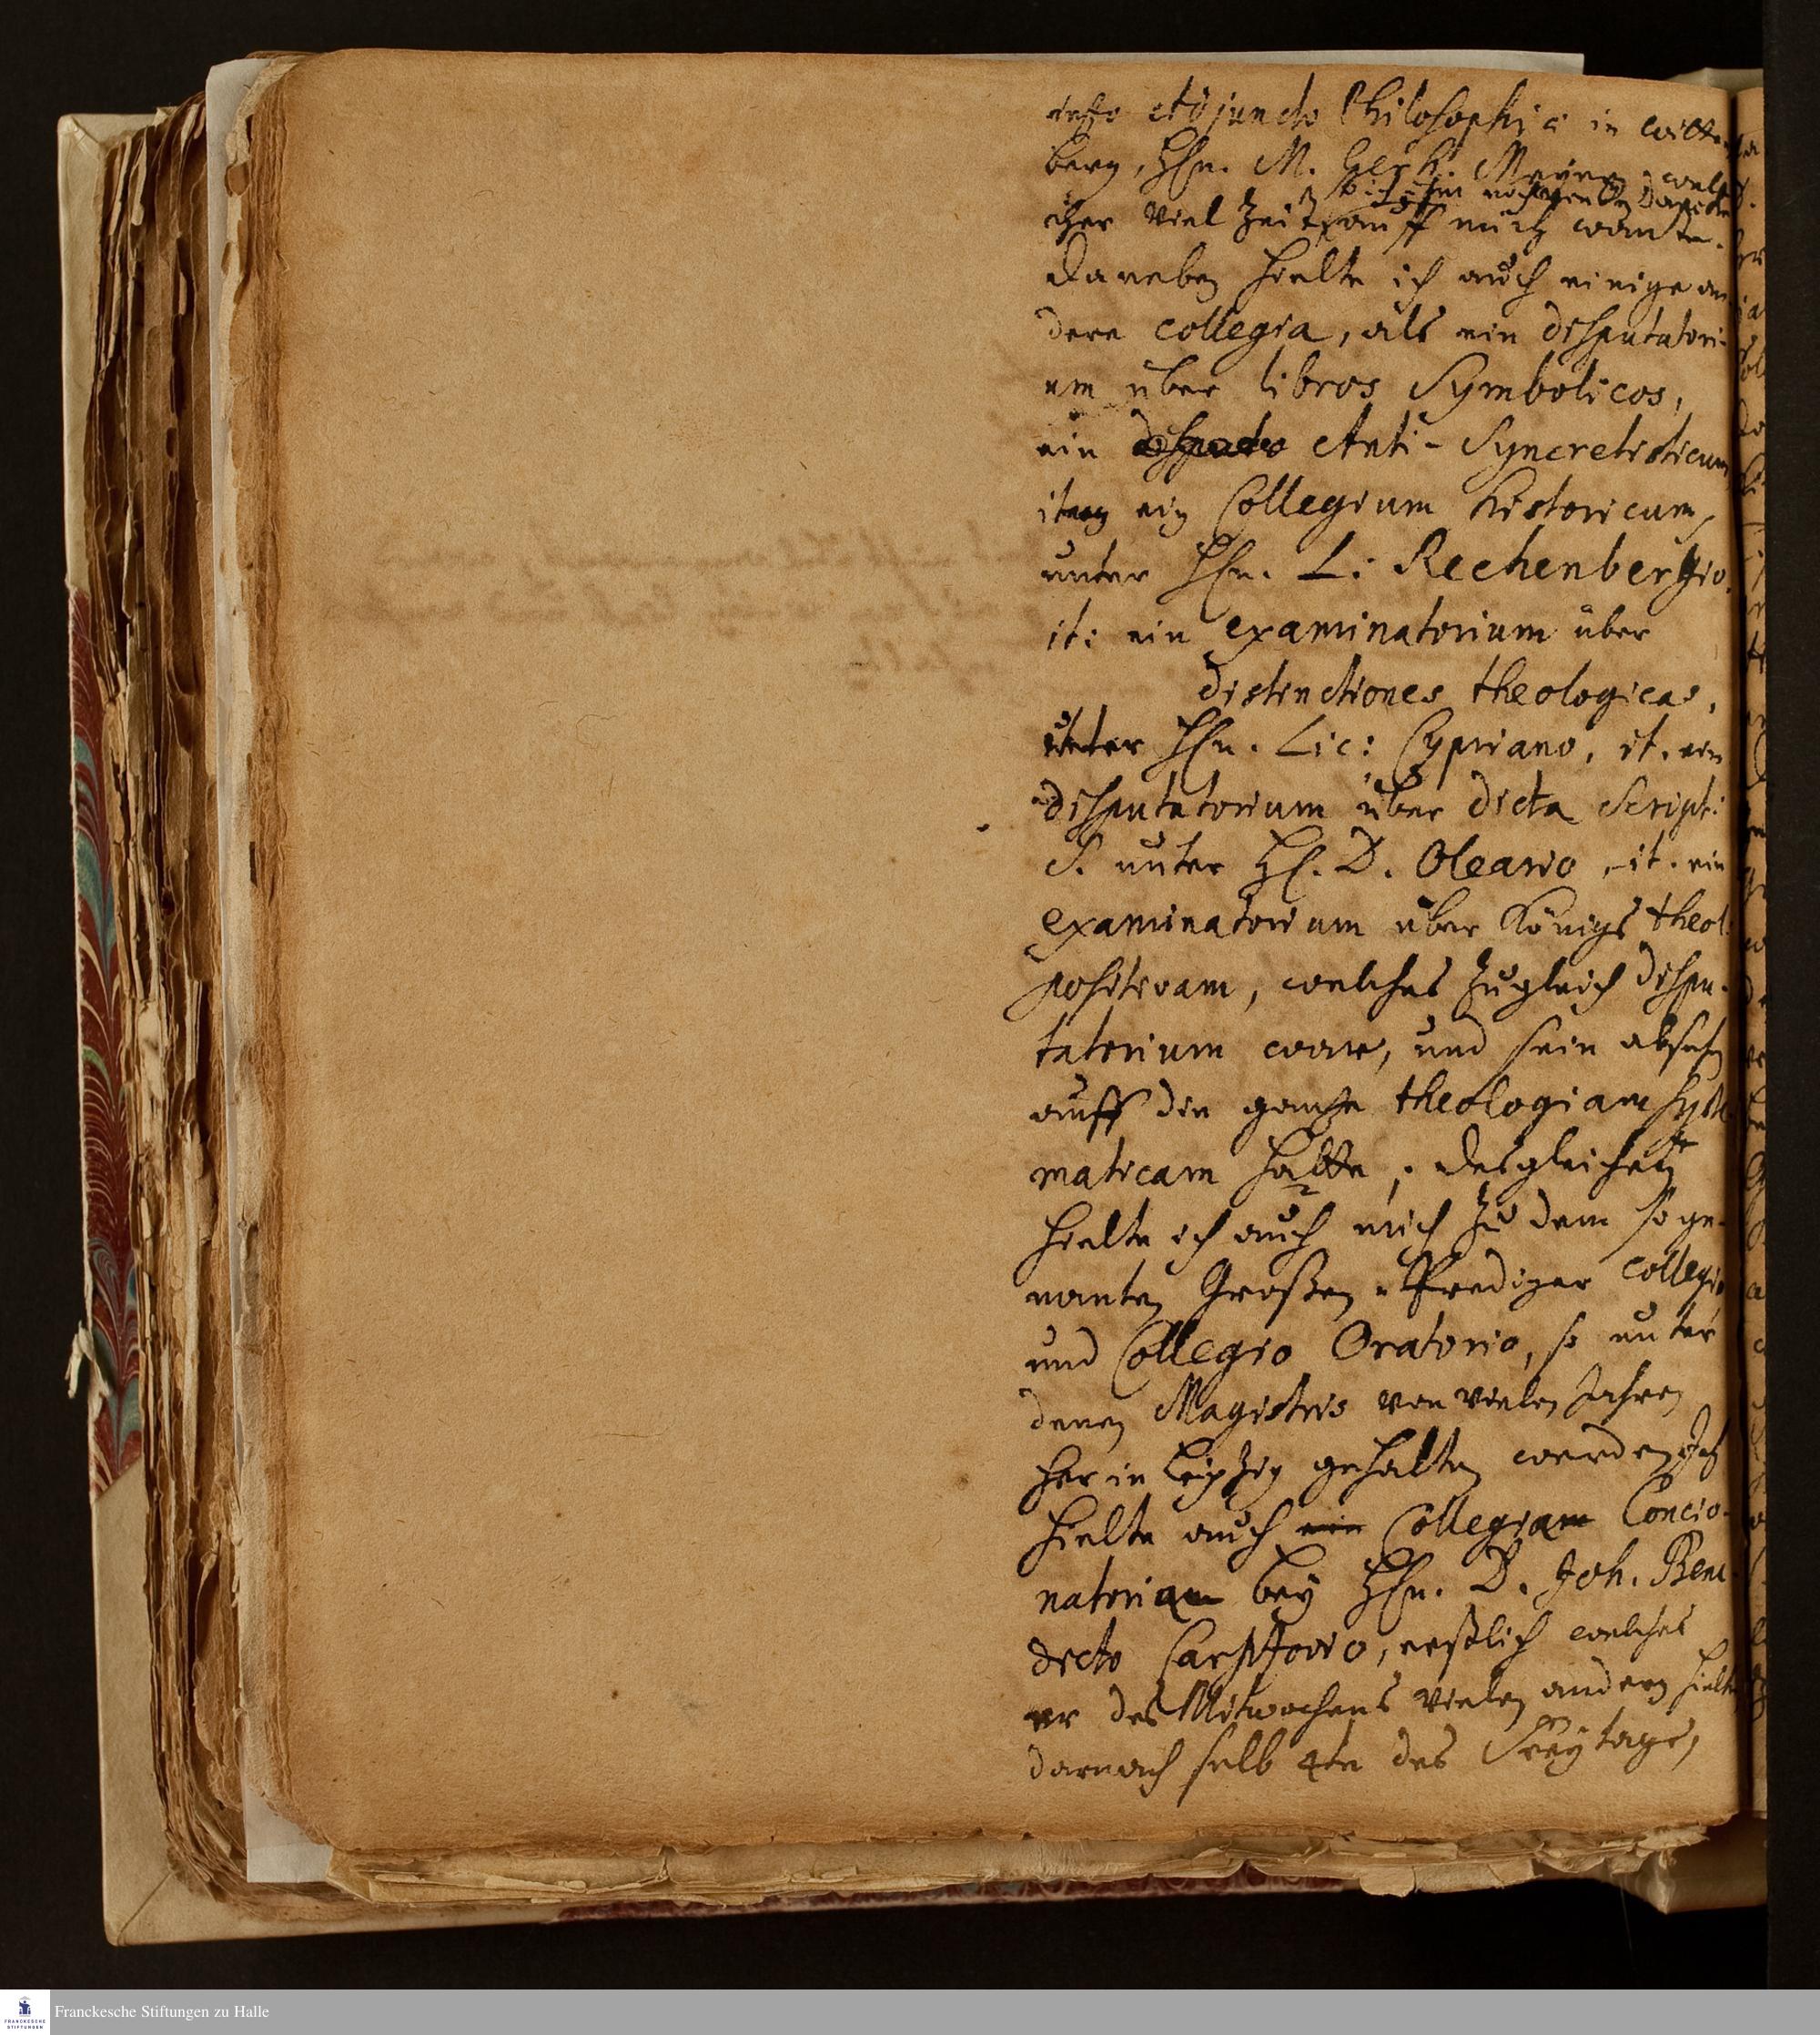 Adjuncto Philosophiæ in Witten
berg, Hhn. M. Gerh. Meyern, wel
ich ihm noch
cher viel Zeit auff mich wante.
Daneben hielte ich auch einige an
dere Collegia, als ein disputatori-
um über libros Symbolicos,
ein Anti-Syncretisticum
ein Collegium historicum,
unter Hhn. L: Rechenbergio.
it: ein examinatorium über
distinctiones theologicas,
unter Hhn. Lic: Cypriano, it. ein
disputatorium über dicta Script:
S. unter HE. D. Oleario, it. ein
examinatorium über Königs theol.
positivam, welches zugleich dispu-
tatorium ware, und sein absehn
auff die gantze theologiam syste
maticam hatte, desgleichen
hielte ich auch mich zu dem so ge-
nanten Großen Prediger Collegio
und Collegio Oratorio, so unter
denen Magistris von vielen Jahren
her in Leipzig gehalten werden. Ich
hielte auch ein Collegiam Concio-
natoriam bey Hhn. D. Joh. Bene
dicto Carpzovio, erstlich welches
er des Mitwochens vielen andern hielte
darnach selb 4te des Freytags,
Franckesche Stiftungen zu Halle
FRANCKESCHE
STIFTUNGEN